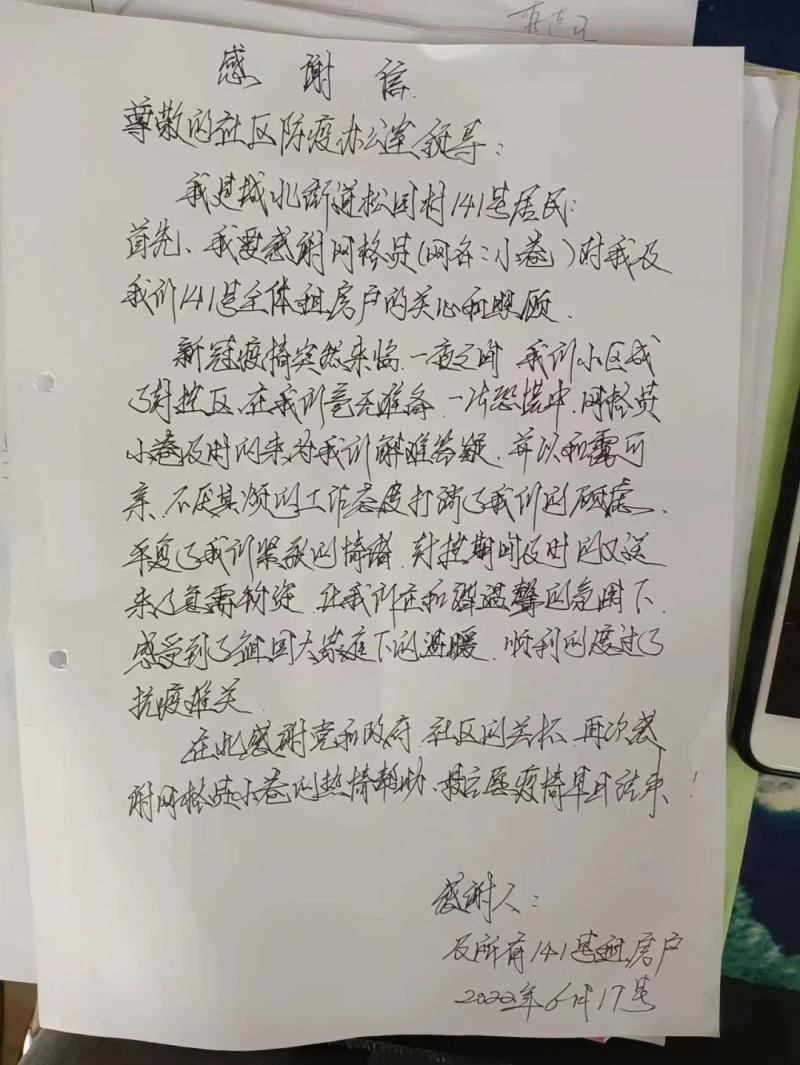 感谢信
尊敬的社区防疫办公室领导：
我是城北街道松园村141号居民：
首先、我要感谢网格员(网名：小卷)对我及
我们141号全体租房户的关心和照顾.
新冠疫情突然来临.一夜之间 我们小区成
了封控区.在我们毫无准备.一片恐慌中.网格员
小卷及时的来为我们解难答疑.并以和霭可
亲.不厌其烦的工作态度打消了我们的顾虑.
平复了我们紧张的情绪.封控期间及时的又送
来了急需物资.让我们在和谐温馨的氛围下.
感受到了祖国大家庭下的温暖.顺利的度过了
抗疫难关
在此感谢党和政府.社区的关怀.再次感
谢网格员小卷的热情帮助、愿疫情早日结束！
感谢人：
及所有141号租房户
2022年6月17号